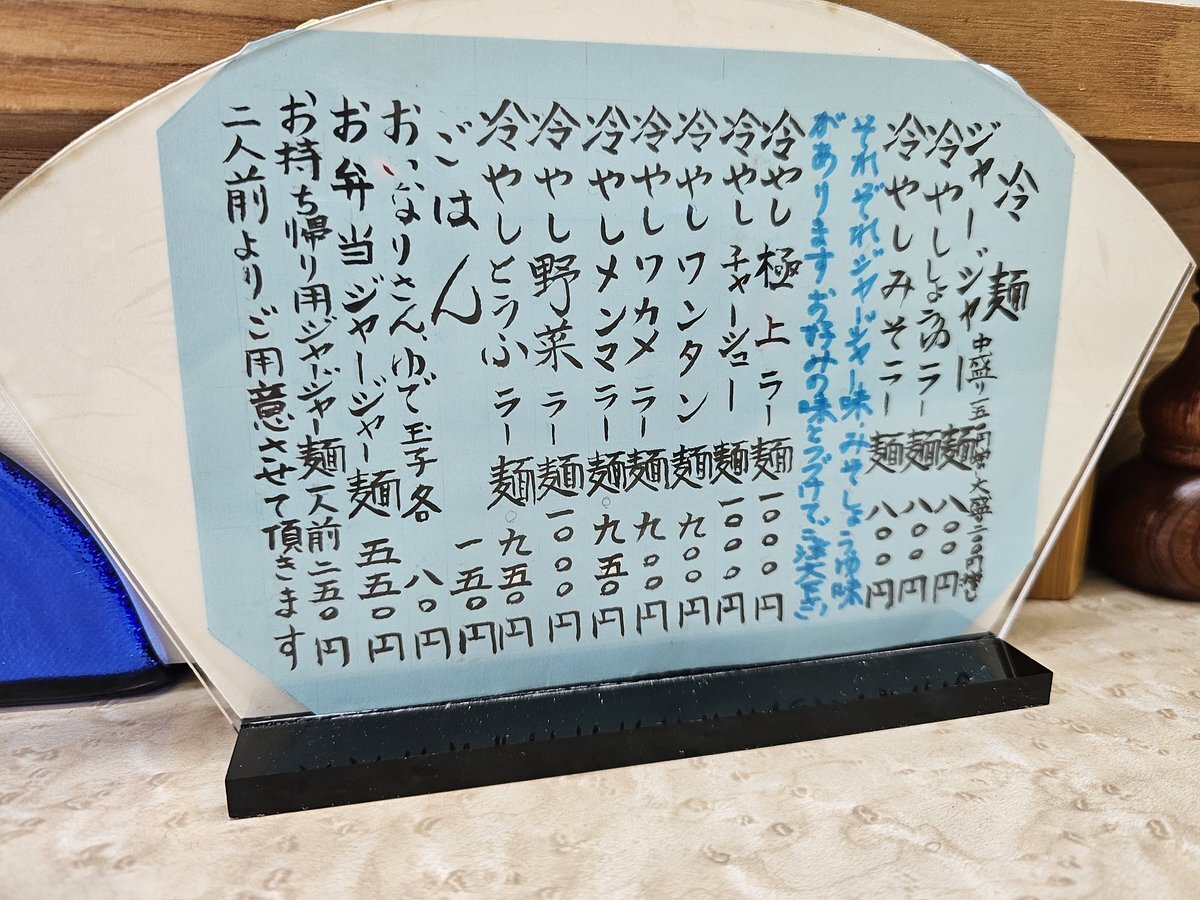 冷麺 中盛り一五〇円増 大盛二〇〇円増し
ジャージャー麺 八〇〇円
冷やししょうゆラー麺 八〇〇円
冷やしみそラー麺 八〇〇円
それぞれジャージャー味、みそしょうゆ味
がありますお好みの味とラブけでご注文下さい
冷やし極上ラー麺 一〇〇〇円
冷やしチャーシュー麺 一〇〇〇円
冷やしワンタン麺 九〇〇円
冷やしワカメラー麺 九〇〇円
冷やしメンマラー麺 九五〇円
冷やし野菜ラー麺 一〇〇〇円
冷やしとうふラー麺 九五〇円
ごはん 一五〇円
おいなりさん、ゆで玉子各 八〇円
お弁当ジャージャー麺 五五〇円
お持ち帰り用ジャージャー麺一人前二五〇円
二人前よりご用意させて頂きます